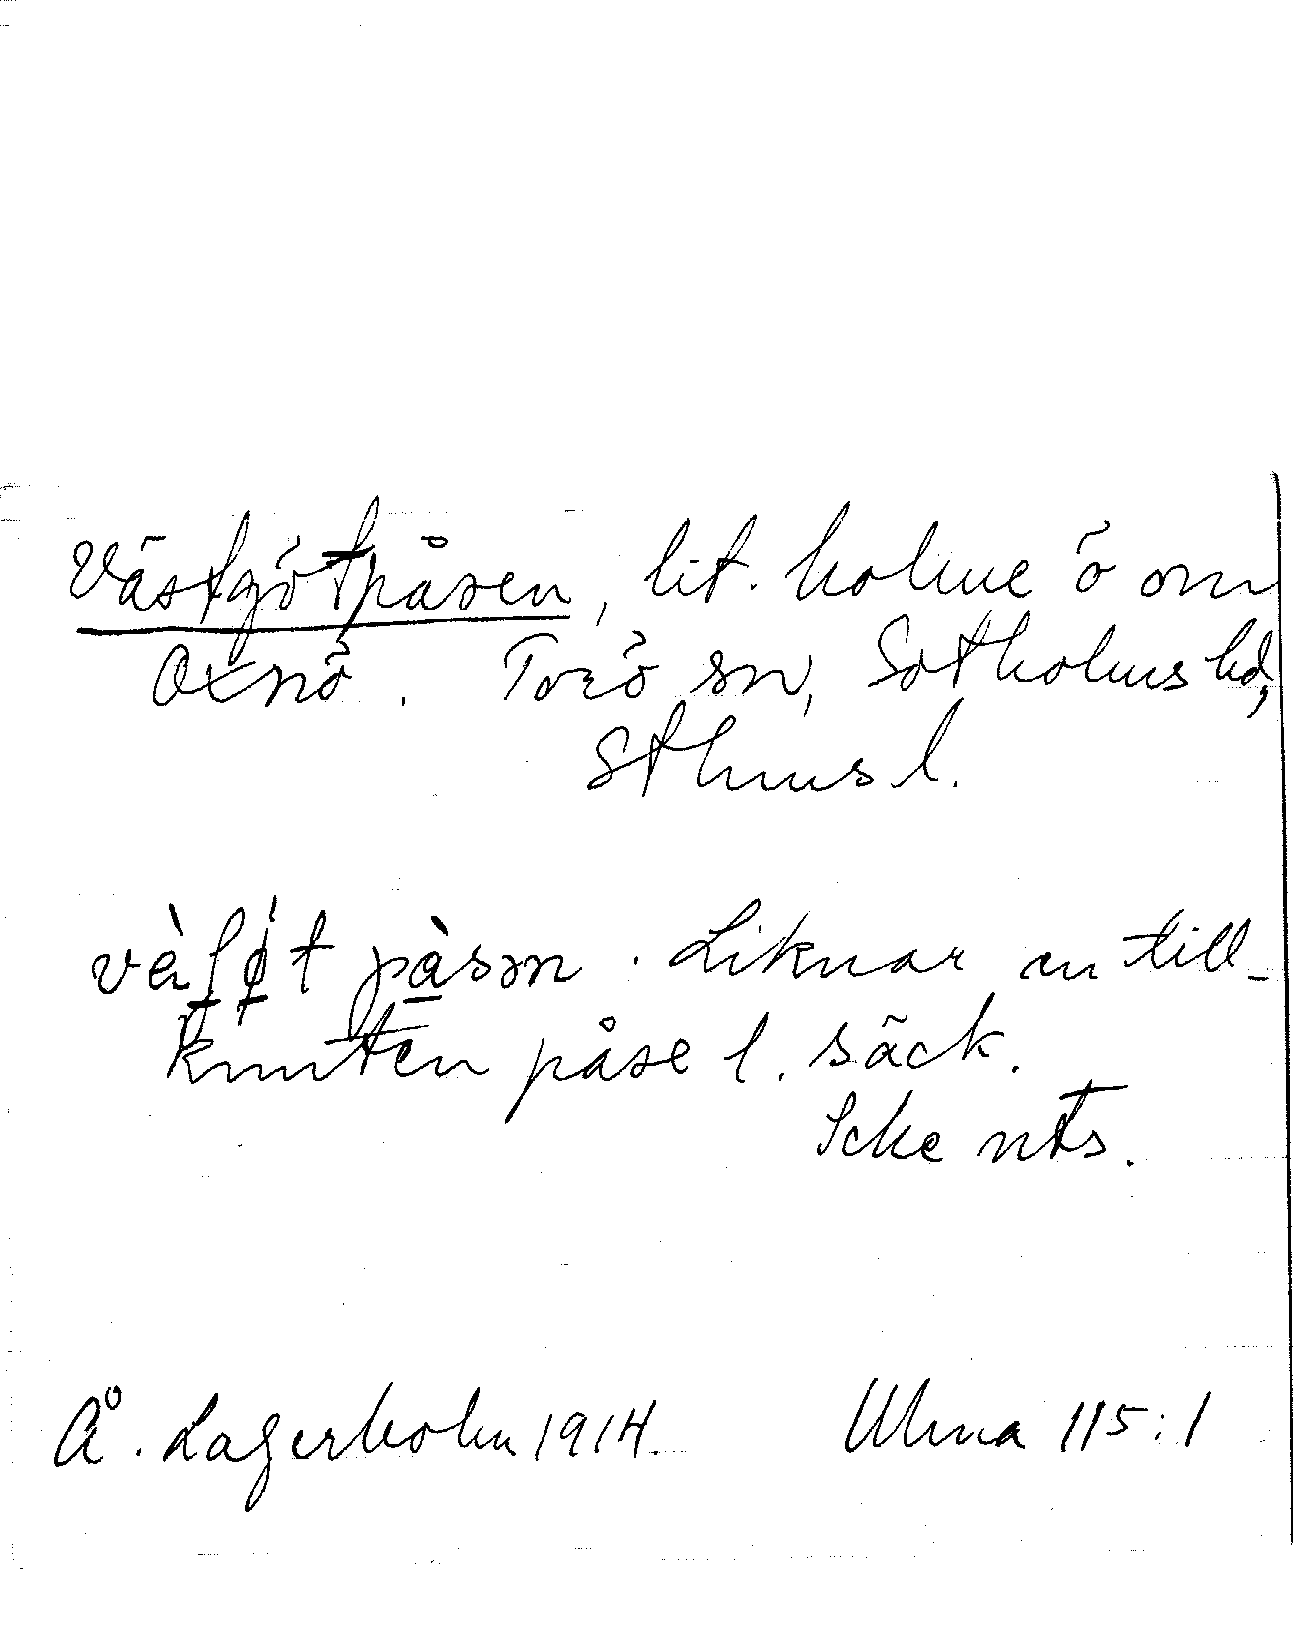 Västgötpåsen, lit. holme ö om
Oxnö. Torö sn, Sotholms hd,
Sthms l.
påsən. Liknar en till-
knuten påse l. säck.
Icke nts.
Å. Lagerholm 1914. Ulma 115:1